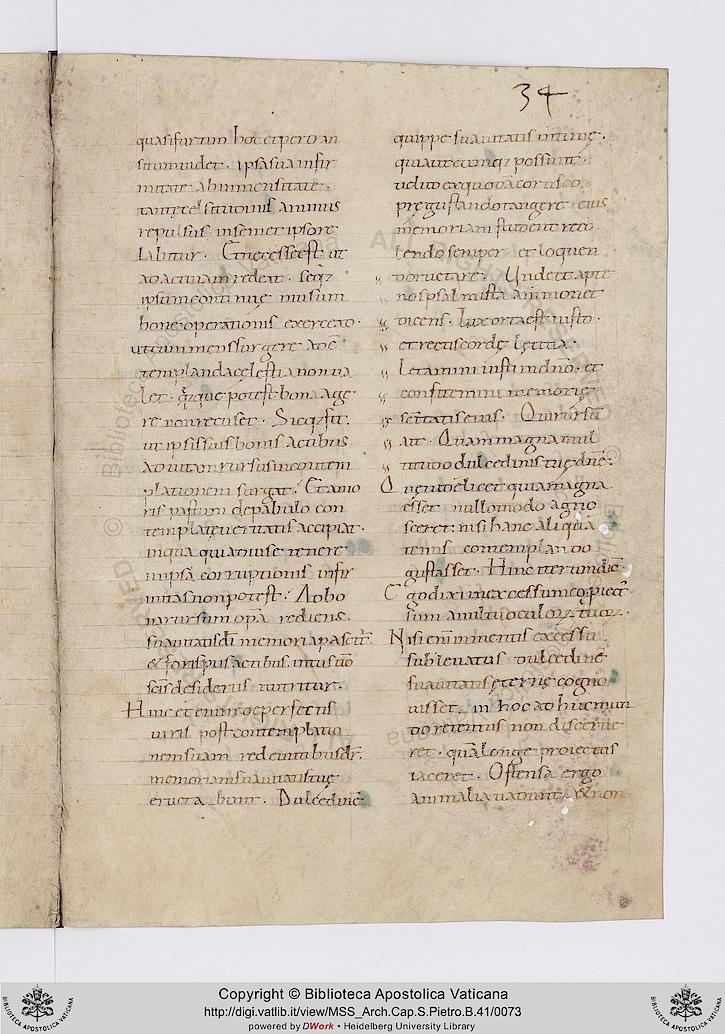 34
quasi furtim hoc et per tran
situm videt. ipsa sua infir
mitate ab inmensitate
tantę celsitudinis animus
repulsus in semet ipso re
labitur. Et necesse est ut
ad activam redeat. seq;
ipsum continuę in usum
bonę operationis exerceat.
ut cum mens surgere ad cō
templanda cęlestia non va
let. que potest bona age
re non recuset. Sicq; fit.
ut ipsis suis bonis actibus
ad vitam rursus in contem
plationem surgat. Et amo
ris pastum de pabulo con
templatę veritatis accipiat.
in qua quia diu se tenere
in ipsa corruptionis infir
mitas non potest. Ad bo
na rursum opera rediens.
suavitatis dī memoria pascit̄.
& foris piis actibus. intus vō
scīs desideriis nutritur.
Hinc et enim de perfectis
viris post contemplatio
nem suam redeuntibus dr̄.
memoriam suavitatis tuę
eructabunt. Dulcedinē
quippe suavitatis intimę.
quia utcumq; possunt.
velut ex quodā corusco.
pręgustando tangere. eius
memoriam student reco
lendo semper et loquen
do ructare. Unde et apte
nos psalmista ammonet
dicens. Lux orta est iusto.
et rectis corde lętitia.
Letamini iusti in dnō. et
confitemini memorię
sc̄itatis eius. Qui rursū
ait. Quam magna mul
titudo dulcedinis tuę dnē.
Quę videlicet quia magna
esset nullo modo agno
sceret. nisi hanc aliquā
tenus contemplando
gustasset. Hinc iterum dic̄.
Ego dixi in excessu meo. piect̄
sum a vultu oculor; tuor;.
Nisi enī in mentis excessu
sublevatus dulcedinē
suavitatis ęternę cogno
visset. in hoc adhuc mun
do retentus non discerne
ret. quā longe proiectus
iaceret. Ostensa ergo
animalia vadunt. & non
Copyright © Biblioteca Apostolica Vaticana
http://digi.vatlib.it/view/MSS_Arch.Cap.S.Pietro.B.41/0073
powered by DWork • Heidelberg University Library